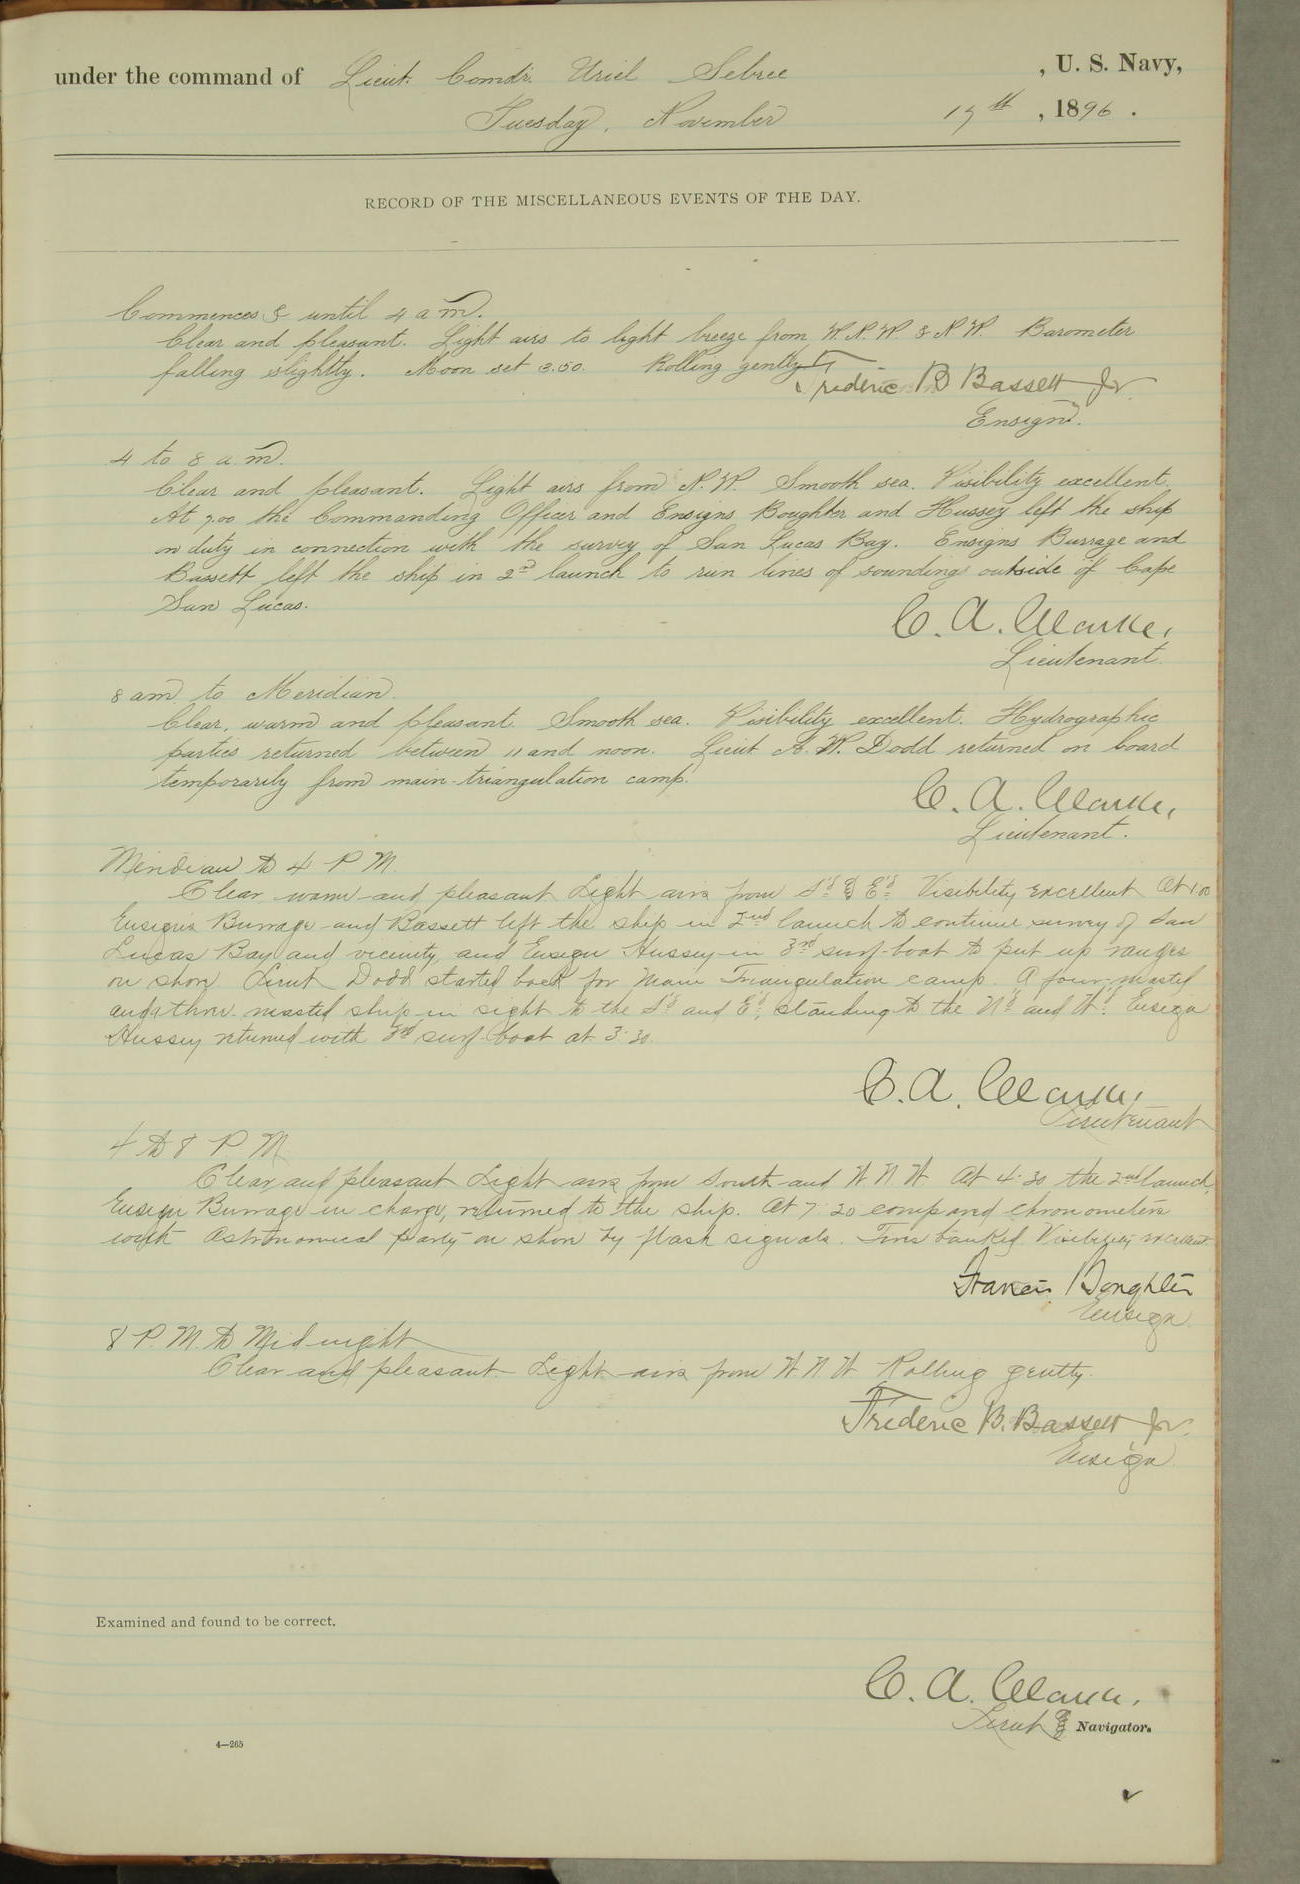 under the command of Lieut. Comdr. Uriel Sebree , U. S. Navy,
Tuesday, November 17th , 1896 .
RECORD OF THE MISCELLANEOUS EVENTS OF THE DAY.
Commences & until 4 a m.
Clear and pleasant. Light airs to light breeze from W.N.W. & N.W. Barometer
falling slightly. Moon set 3.50. Rolling gently.
Frederic B Bassett Jr.
Ensign.
4 to 8 a.m.
Clear and pleasant. Light airs from N.W. Smooth sea. Visibility excellent.
At 7.00 the Commanding Officer and Ensigns Boughter and Hussey left the ship
on duty in connection with the survey of San Lucas Bay. Ensigns Burrage and
Bassett left the ship in 2d launch to run lines of soundings outside of Cape
San Lucas.
C. A. Clarke,
Lieutenant.
8 am to Meridian.
Clear, warm and pleasant. Smooth sea. Visibility excellent. Hydrographic
parties returned between 11 and noon. Lieut A. W. Dodd returned on board
temporarily from main-triangulation camp.
C. A. Clarke,
Lieutenant.
Meridian to 4 P M.
Clear warm and pleasant Light airs from S'd & E'd Visibility excellent At 1.00
Ensigns Burrage and Bassett left the ship in 2nd launch to continue survey of San
Lucas Bay and vicinity, and Ensign Hussey in 3rd surf-boat to put up ranges
on shore. Lieut Dodd started back for Main Triangulation camp. A four-masted
and a three-masted ship in sight to the S'd and E'd, standing to the N'd and W'd. Ensign
Hussey returned with 3rd surf-boat at 3.30.
C. A. Clarke,
Lieutenant
4 to 8 P. M
Clear and pleasant Light airs from South and W N W At 4.30 the 2nd launch,
Ensign Burrage in charge, returned to the ship. At 7.20 compared chronometers
with Astronomical party on shore by flash signals. Fires banked Visibility excellent
Francis Boughter
Ensign.
8 P. M. to Midnight
Clear and pleasant Light airs from W N W Rolling gently.
Frederic B. Bassett Jr.
Ensign
Examined and found to be correct.
C. A. Clarke,
Lieut & Navigator.
4—265